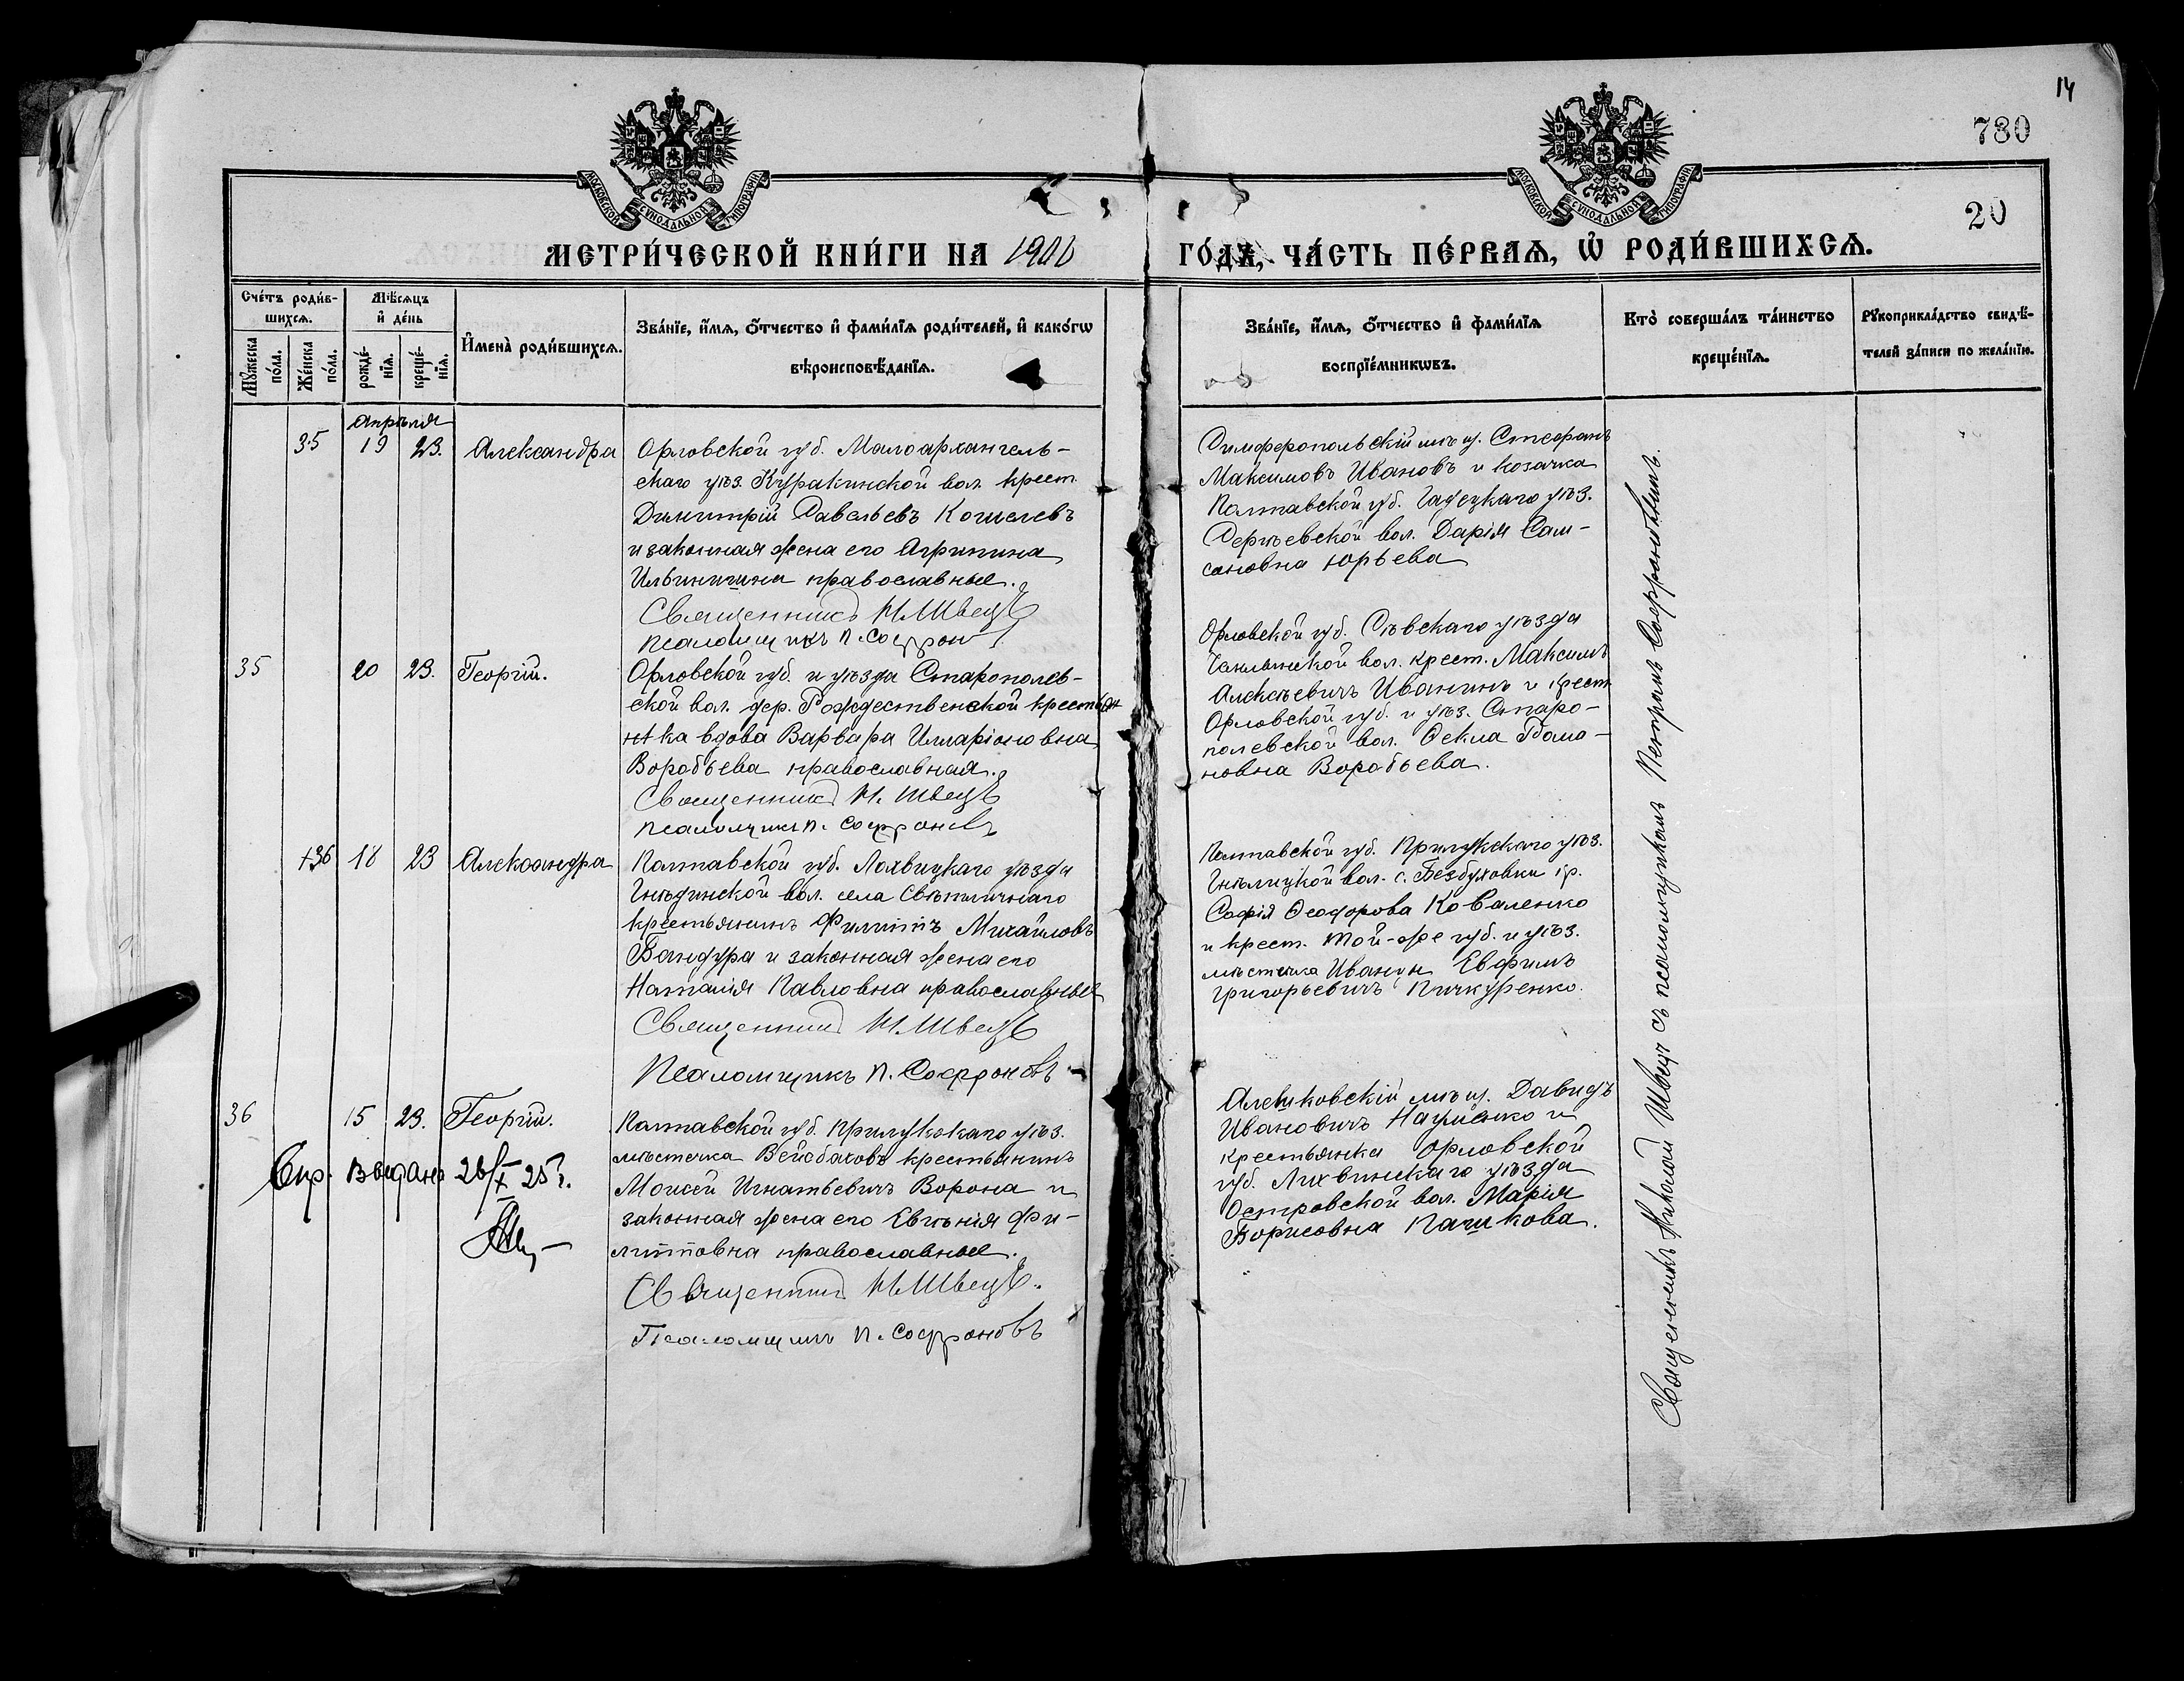 14
780
20
МОСКОВСКОЙ СѴНОДАЛЬНОЙ ТИПОГРАФІИ
МОСКОВСКОЙ СѴНОДАЛЬНОЙ ТИПОГРАФІИ
МЕТРИ́ЧЕСКОЙ КНИ́ГИ НА
ГО́ДЪ, ЧА́СТЬ ПЕ́РВАѦ, Ѡ҆ РОДИ́ВШИХСѦ.
Сче́тъ роди́в-
шихсѧ.
Мꙋ́жеска по́ла.
Же́нска по́ла.
Мѣ́сѧцъ
и҆ де́нь
рожде́-
нїѧ.
креще́-
нїѧ.
И҆мена̀ роди́вшихсѧ.
Зва́нїе, и҆́мѧ, ѻ҆́тчество и҆ фами́лїѧ роди́телей, и҆ како́гѡ
вѣроисповѣ́данїѧ.
Зва́нїе, и҆́мѧ, ѻ҆́тчество и҆ фами́лїѧ
воспрїе́мникѡвъ.
Кто̀ соверша́лъ та́инство
креще́нїѧ.
Рꙋкоприкла́дство свидѣ́-
телей за́писи по жела́нїю.
Апрѣля
35 19 23. Александра
Орловской губ. Малоархангель-
скаго уѣз. Куракинской вол. крест.
Димитрій Савельевъ Кошелевъ
и законная жена его Агрипина
Ильинична православные.
Священникъ Н. Швецъ
Псаломщикъ П. Софрон
Симферопольскій мѣщ. Стефанъ
Максимовъ Ивановъ и козачка
Полтавской губ. Гадецкаго уѣз.
вол. Дарія Сам-
соновна Юрьева
35 20 23. Георгій.
Орловской губ. и уѣзда Старополев-
ской вол. дер. Рождественской крестьян
ка вдова Варвара Илларіоновна
Воробьева православная.
Священникъ Н. Швецъ
Псаломщикъ П. Софроновъ
Орловской губ. Сѣвскаго уѣзда
вол. крест. Максимъ
Алексѣевичъ Иванинъ и крест
Орловской губ. и уѣз. Старо-
полевской вол. Ѳекла
новна Воробьева.
+36 18 23 Александра
Полтавской губ. Лохвицкаго уѣзда
Гнѣдинской вол. села
крестьянинъ Филиппъ Михайловъ
Бандура и законная жена его
Наталія Павловна православные
Священникъ Н. Швецъ
Псаломщикъ П. Софроновъ
Полтавской губ. Прилукскаго уѣз.
вол. с. Безбуховки кр.
Софія Ѳеодорова Коваленко
и крест. той-же губ. и уѣз.
мѣстечка Евфимъ
Григорьевичъ Пичкуренко.
36 15 23. Георгій.
Полтавской губ. Прилукскаго уѣз.
мѣстечка крестьянинъ
Моисей Игнатьевичъ Ворона и
законная жена его Евгенія Фи-
липповна православные.
Священникъ Н. Швецъ.
Псаломщикъ П. Софроновъ
Алешковскій мѣщ. Давидъ
Ивановичъ Науменко и
крестьянка Орловской
губ. уѣзда
Островской вол. Марія
Борисовна Пашкова.
Спр. Выдана
Священникъ Николай Швецъ съ псаломщикомъ Петромъ Софроновымъ.